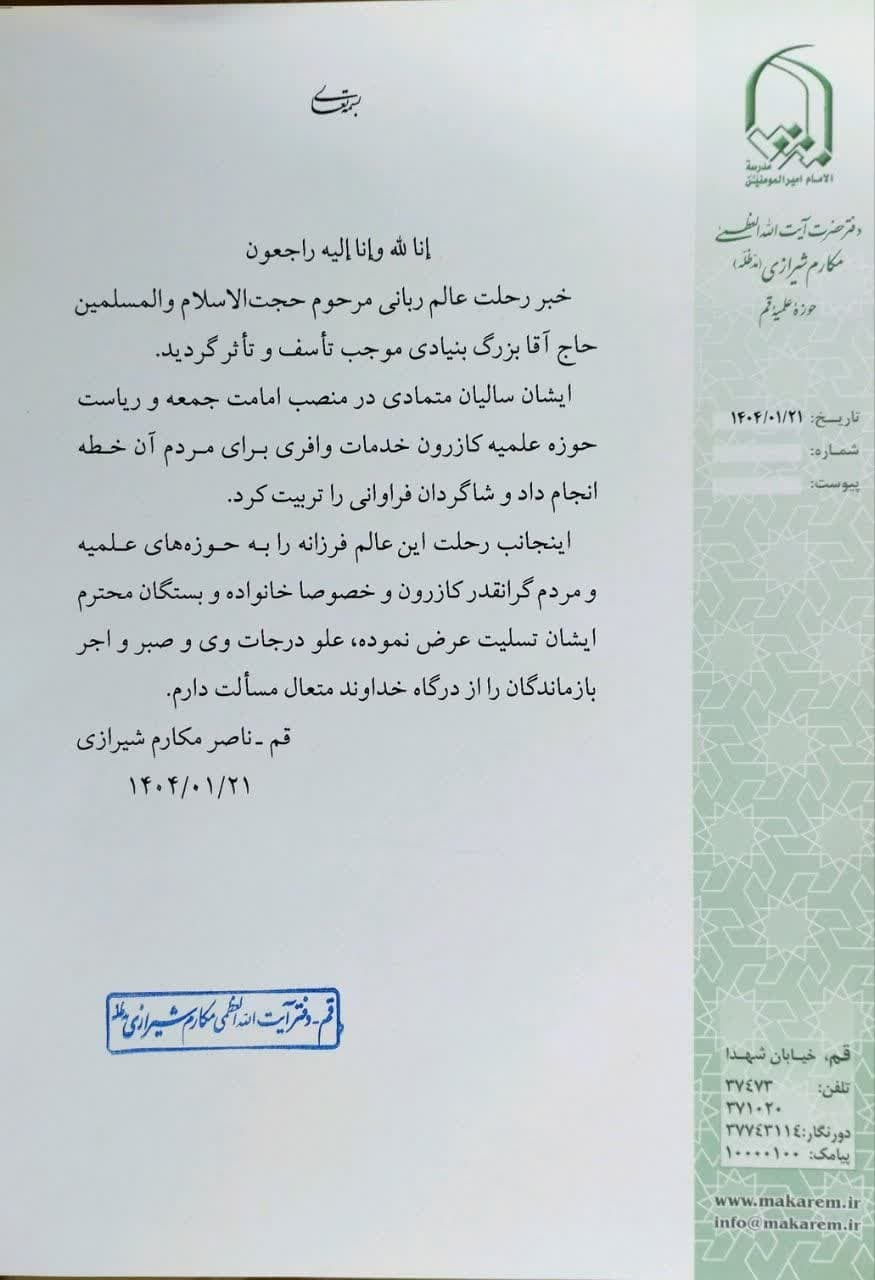 بسمه تعالی
إنا لله وإنا إلیه راجعون
خبر رحلت عالم ربانی مرحوم حجت‌الاسلام والمسلمین
حاج آقا بزرگ بنیادی موجب تأسف و تأثر گردید.
ایشان سالیان متمادی در منصب امامت جمعه و ریاست
حوزه علمیه کازرون خدمات وافری برای مردم آن خطه
انجام داد و شاگردان فراوانی را تربیت کرد.
اینجانب رحلت این عالم فرزانه را به حوزه‌های علمیه
و مردم گرانقدر کازرون و خصوصا خانواده و بستگان محترم
ایشان تسلیت عرض نموده، علو درجات وی و صبر و اجر
بازماندگان را از درگاه خداوند متعال مسألت دارم.
قم ـ ناصر مکارم شیرازی
۱۴۰۴/۰۱/۲۱
قم - دفتر آیت الله العظمی مکارم شیرازی مدظله
مدرسة
الامام امیرالمومنین
دفتر حضرت آیت الله العظمی
مکارم شیرازی (مدظله)
حوزه علمیه قم
تاریخ: ۱۴۰۴/۰۱/۲۱
شماره:
پیوست:
قم، خیابان شهدا
تلفن: ۳۷۴۷۳
۳۷۱۰۲۰
دورنگار: ۳۷۷۴۳۱۱۴
پیامک: ۱۰۰۰۰۱۰۰
www.makarem.ir
info@makarem.ir